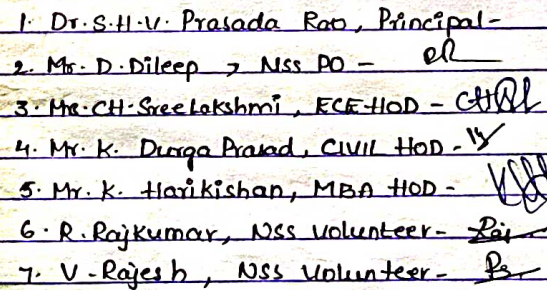 1. Dr. S.H.V. Prasada Rao, Principal -
2. Mr. D. Dileep, NSS PO -
3. Mrs. CH. Sreelakshmi, ECE HOD -
4. Mr. K. Durga Prasad, CIVIL HOD -
5. Mr. K. Harikishan, MBA HOD -
6. R. Rajkumar, NSS Volunteer -
7. V. Rajesh, NSS Volunteer -